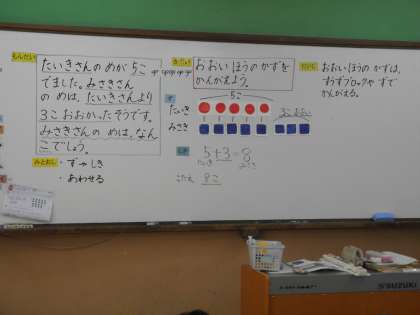 もんだい
たいきさんの めが 5こ
でました。みさきさん
の めは、たいきさんより
3こ おおかったそうです。
みさきさんの めは、なん
こでしょう。
みとおし
・ず→しき
・あわせる
おおいほうの かずを
かんがえよう。
ず
5こ
たいき
みさき
3こ おおい
しき
5+3=8
こたえ 8こ
おおいほうの かずは、
ずやブロックや すで
かんがえる。
SUZUKI